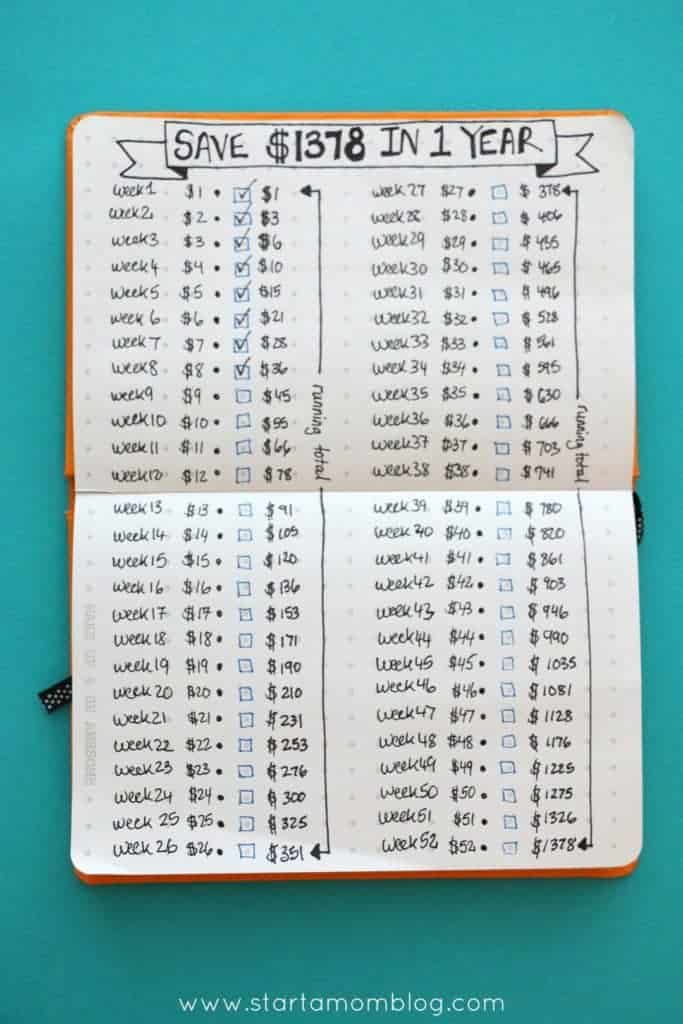 SAVE $1378 IN 1 YEAR
week1 $1 • $1
week2 $2 • $3
week3 $3 • $6
week4 $4 • $10
week5 $5 • $15
week6 $6 • $21
week7 $7 • $28
week8 $8 • $36
week9 $9 • $45
week10 $10 • $55
week11 $11 • $66
week12 $12 • $78
week13 $13 • $91
week14 $14 • $105
week15 $15 • $120
week16 $16 • $136
week17 $17 • $153
week18 $18 • $171
week19 $19 • $190
week20 $20 • $210
week21 $21 • $231
week22 $22 • $253
week23 $23 • $276
week24 $24 • $300
week25 $25 • $325
week26 $26 • $351
running total
week27 $27 • $378
week28 $28 • $406
week29 $29 • $435
week30 $30 • $465
week31 $31 • $496
week32 $32 • $528
week33 $33 • $561
week34 $34 • $595
week35 $35 • $630
week36 $36 • $666
week37 $37 • $703
week38 $38 • $741
week39 $39 • $780
week40 $40 • $820
week41 $41 • $861
week42 $42 • $903
week43 $43 • $946
week44 $44 • $990
week45 $45 • $1035
week46 $46 • $1081
week47 $47 • $1128
week48 $48 • $1176
week49 $49 • $1225
week50 $50 • $1275
week51 $51 • $1326
week52 $52 • $1378
running total
WAKE UP & BE AWESOME
www.startamomblog.com